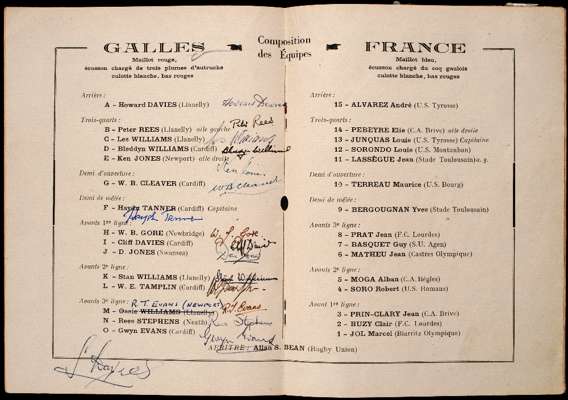 GALLES
Maillot rouge,
écusson chargé de trois plumes d'autruche
culotte blanche, bas rouges
Composition
des Équipes
FRANCE
Maillot bleu,
écusson chargé du coq gaulois
culotte blanche, bas rouges
Arrière :
A - Howard DAVIES (Llanelly)
Trois-quarts :
B - Peter REES (Llanelly) aile gauche Peter Rees
C - Les WILLIAMS (Llanelly) Les Williams
D - Bleddyn WILLIAMS (Cardiff) Bleddyn Williams
E - Ken JONES (Newport) aile droite
Ken Jones
Demi d'ouverture :
G - W. B. CLEAVER (Cardiff) W B Cleaver
Demi de mêlée :
F - Haydn TANNER (Cardiff) Capitaine
Haydn Tanner
Avants 1re ligne :
H - W. B. GORE (Newbridge) W. B. Gore
I - Cliff DAVIES (Cardiff)
J - D. JONES (Swansea)
Avants 2e ligne :
K - Stan WILLIAMS (Llanelly) Stan Williams
L - W. E. TAMPLIN (Cardiff)
Avants 3e ligne : R. T. EVANS (NEWPORT)
M - Ossie WILLIAMS (Llanelly) R. T. Evans
N - Rees STEPHENS (Neath) Rees Stephens
O - Gwyn EVANS (Cardiff) Gwyn Evans
Arrière :
15 - ALVAREZ André (U.S. Tyrosse)
Trois-quarts :
14 - PEBEYRE Elie (C.A. Brive) aile droite
13 - JUNQUAS Louis (U.S. Tyrosse) Capitaine
12 - SORONDO Louis (U.S. Montauban)
11 - LASSÈGUE Jean (Stade Toulousain) a. g.
Demi d'ouverture :
10 - TERREAU Maurice (U.S. Bourg)
Demi de mêlée :
9 - BERGOUGNAN Yves (Stade Toulousain)
Avants 3e ligne :
8 - PRAT Jean (F.C. Lourdes)
7 - BASQUET Guy (S.U. Agen)
6 - MATHEU Jean (Castres Olympique)
Avants 2e ligne :
5 - MOGA Alban (C.A. Bègles)
4 - SORO Robert (U.S. Romans)
Avants 1re ligne :
3 - PRIN-CLARY Jean (C.A. Brive)
2 - BUZY Clair (F.C. Lourdes)
1 - JOL Marcel (Biarritz Olympique)
ARBITRE : Allan S. BEAN (Rugby Union)